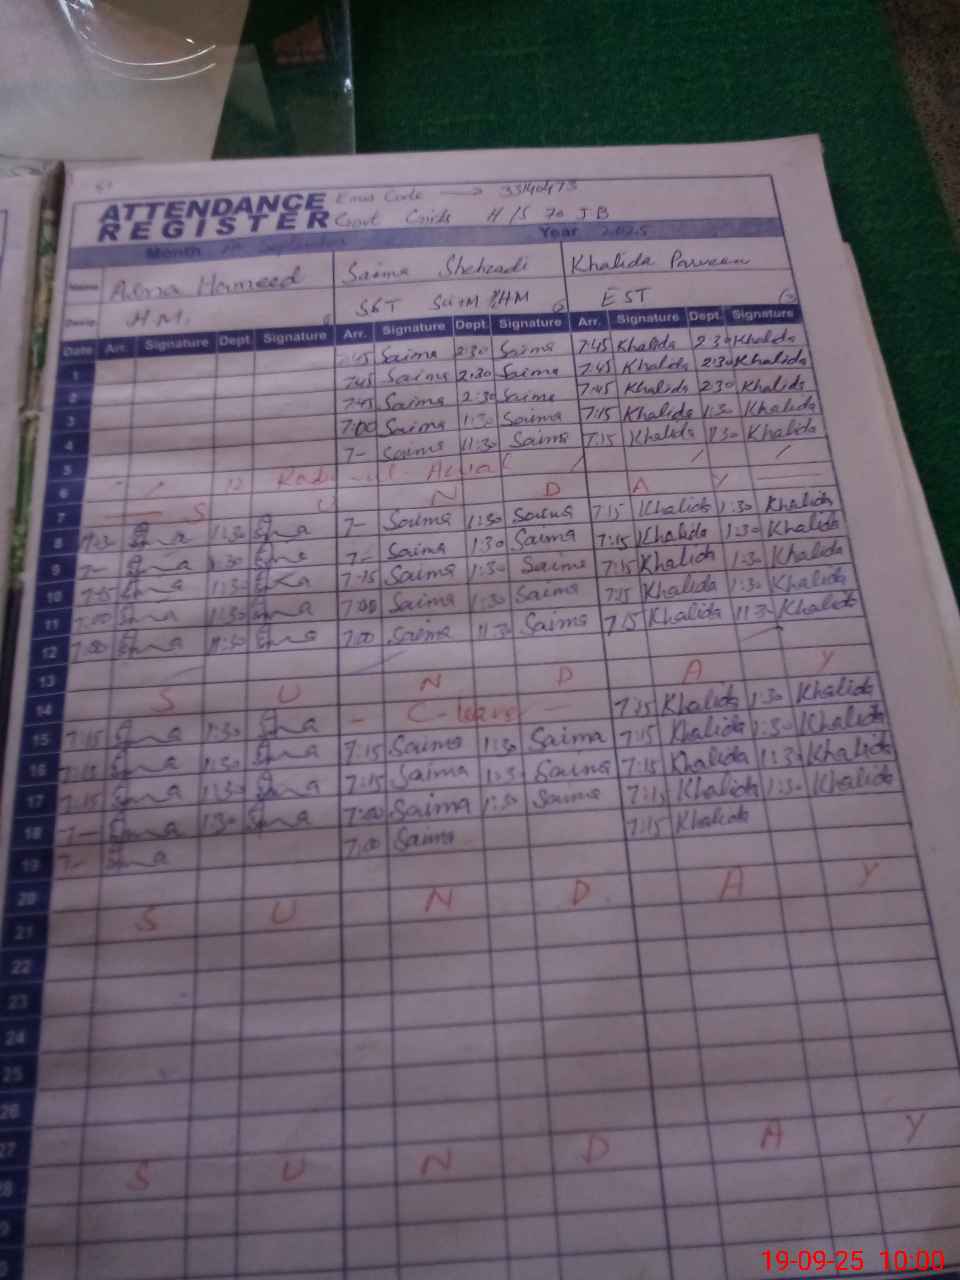 ATTENDANCE Emis Code → 33140473
REGISTER Govt Girls H/S 70 J.B
Month September Year 2025
Name Asma Hameed Saima Shehzadi Khalida Parveen
Desig. H.M. SST EST
Date Arr. Signature Dept. Signature Arr. Signature Dept. Signature Arr. Signature Dept. Signature
1 7:45 Saima 2:30 Saima 7:45 Khalida 2:30 Khalida
2 7:45 Saima 2:30 Saima 7:45 Khalida 2:30 Khalida
3 7:45 Saima 2:30 Saima 7:45 Khalida 2:30 Khalida
4 7:00 Saima 1:30 Saima 7:15 Khalida 1:30 Khalida
5 7- Saima 11:30 Saima 7:15 Khalida Khalida
6 12 Rabi
7 S U N D A Y
8 1:30 7- Saima 1:30 Saima 7:15 Khalida 1:30 Khalida
9 7- 1:30 7- Saima 1:30 Saima 7:15 Khalida 1:30 Khalida
10 7:15 1:30 7:15 Saima 1:30 Saima 7:15 Khalida 1:30 Khalida
11 7:00 7:00 Saima 1:30 Saima 7:15 Khalida 1:30 Khalida
12 7:00 7:00 Saima 11:30 Saima 7:15 Khalida 11:30 Khalida
13
14 S U N D A Y
15 7:15 1:30 - C-leave 7:15 Khalida 1:30 Khalida
16 7:15 1:30 7:15 Saima 1:30 Saima 7:15 Khalida 1:30 Khalida
17 7:15 1:30 7:15 Saima 1:30 Saima 7:15 Khalida 1:30 Khalida
18 7- 1:30 7:00 Saima 1:30 Saima 7:15 Khalida 1:30 Khalida
19 7- 7:00 Saima 7:15 Khalida
20
21 S U N D A Y
22
23
24
25
26
27
28 S U N D A Y
19-09-25 10:00